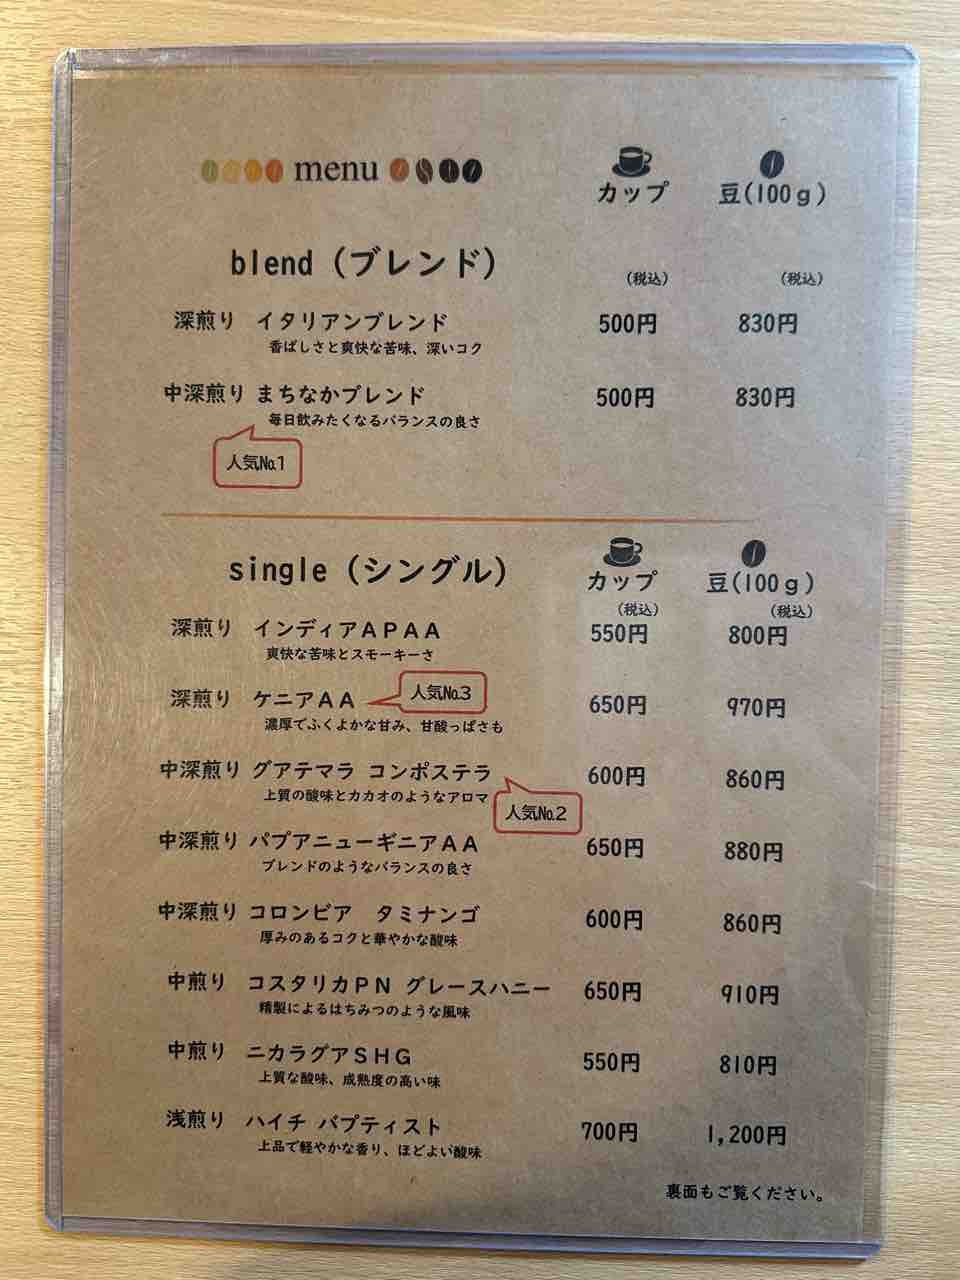 menu
カップ 豆(100g)
blend (ブレンド)
(税込) (税込)
深煎り イタリアンブレンド 500円 830円
香ばしさと爽快な苦味、深いコク
中深煎り まちなかブレンド 500円 830円
毎日飲みたくなるバランスの良さ
人気№1
single (シングル) カップ 豆(100g)
(税込) (税込)
深煎り インディアAPAA 550円 800円
爽快な苦味とスモーキーさ
深煎り ケニアAA 人気№3 650円 970円
濃厚でふくよかな甘み、甘酸っぱさも
中深煎り グアテマラ コンポステラ 600円 860円
上質の酸味とカカオのようなアロマ
人気№2
中深煎り パプアニューギニアAA 650円 880円
ブレンドのようなバランスの良さ
中深煎り コロンビア タミナンゴ 600円 860円
厚みのあるコクと華やかな酸味
中煎り コスタリカPN グレースハニー 650円 910円
精製によるはちみつのような風味
中煎り ニカラグアSHG 550円 810円
上質な酸味、成熟度の高い味
浅煎り ハイチ バプティスト 700円 1,200円
上品で軽やかな香り、ほどよい酸味
裏面もご覧ください。